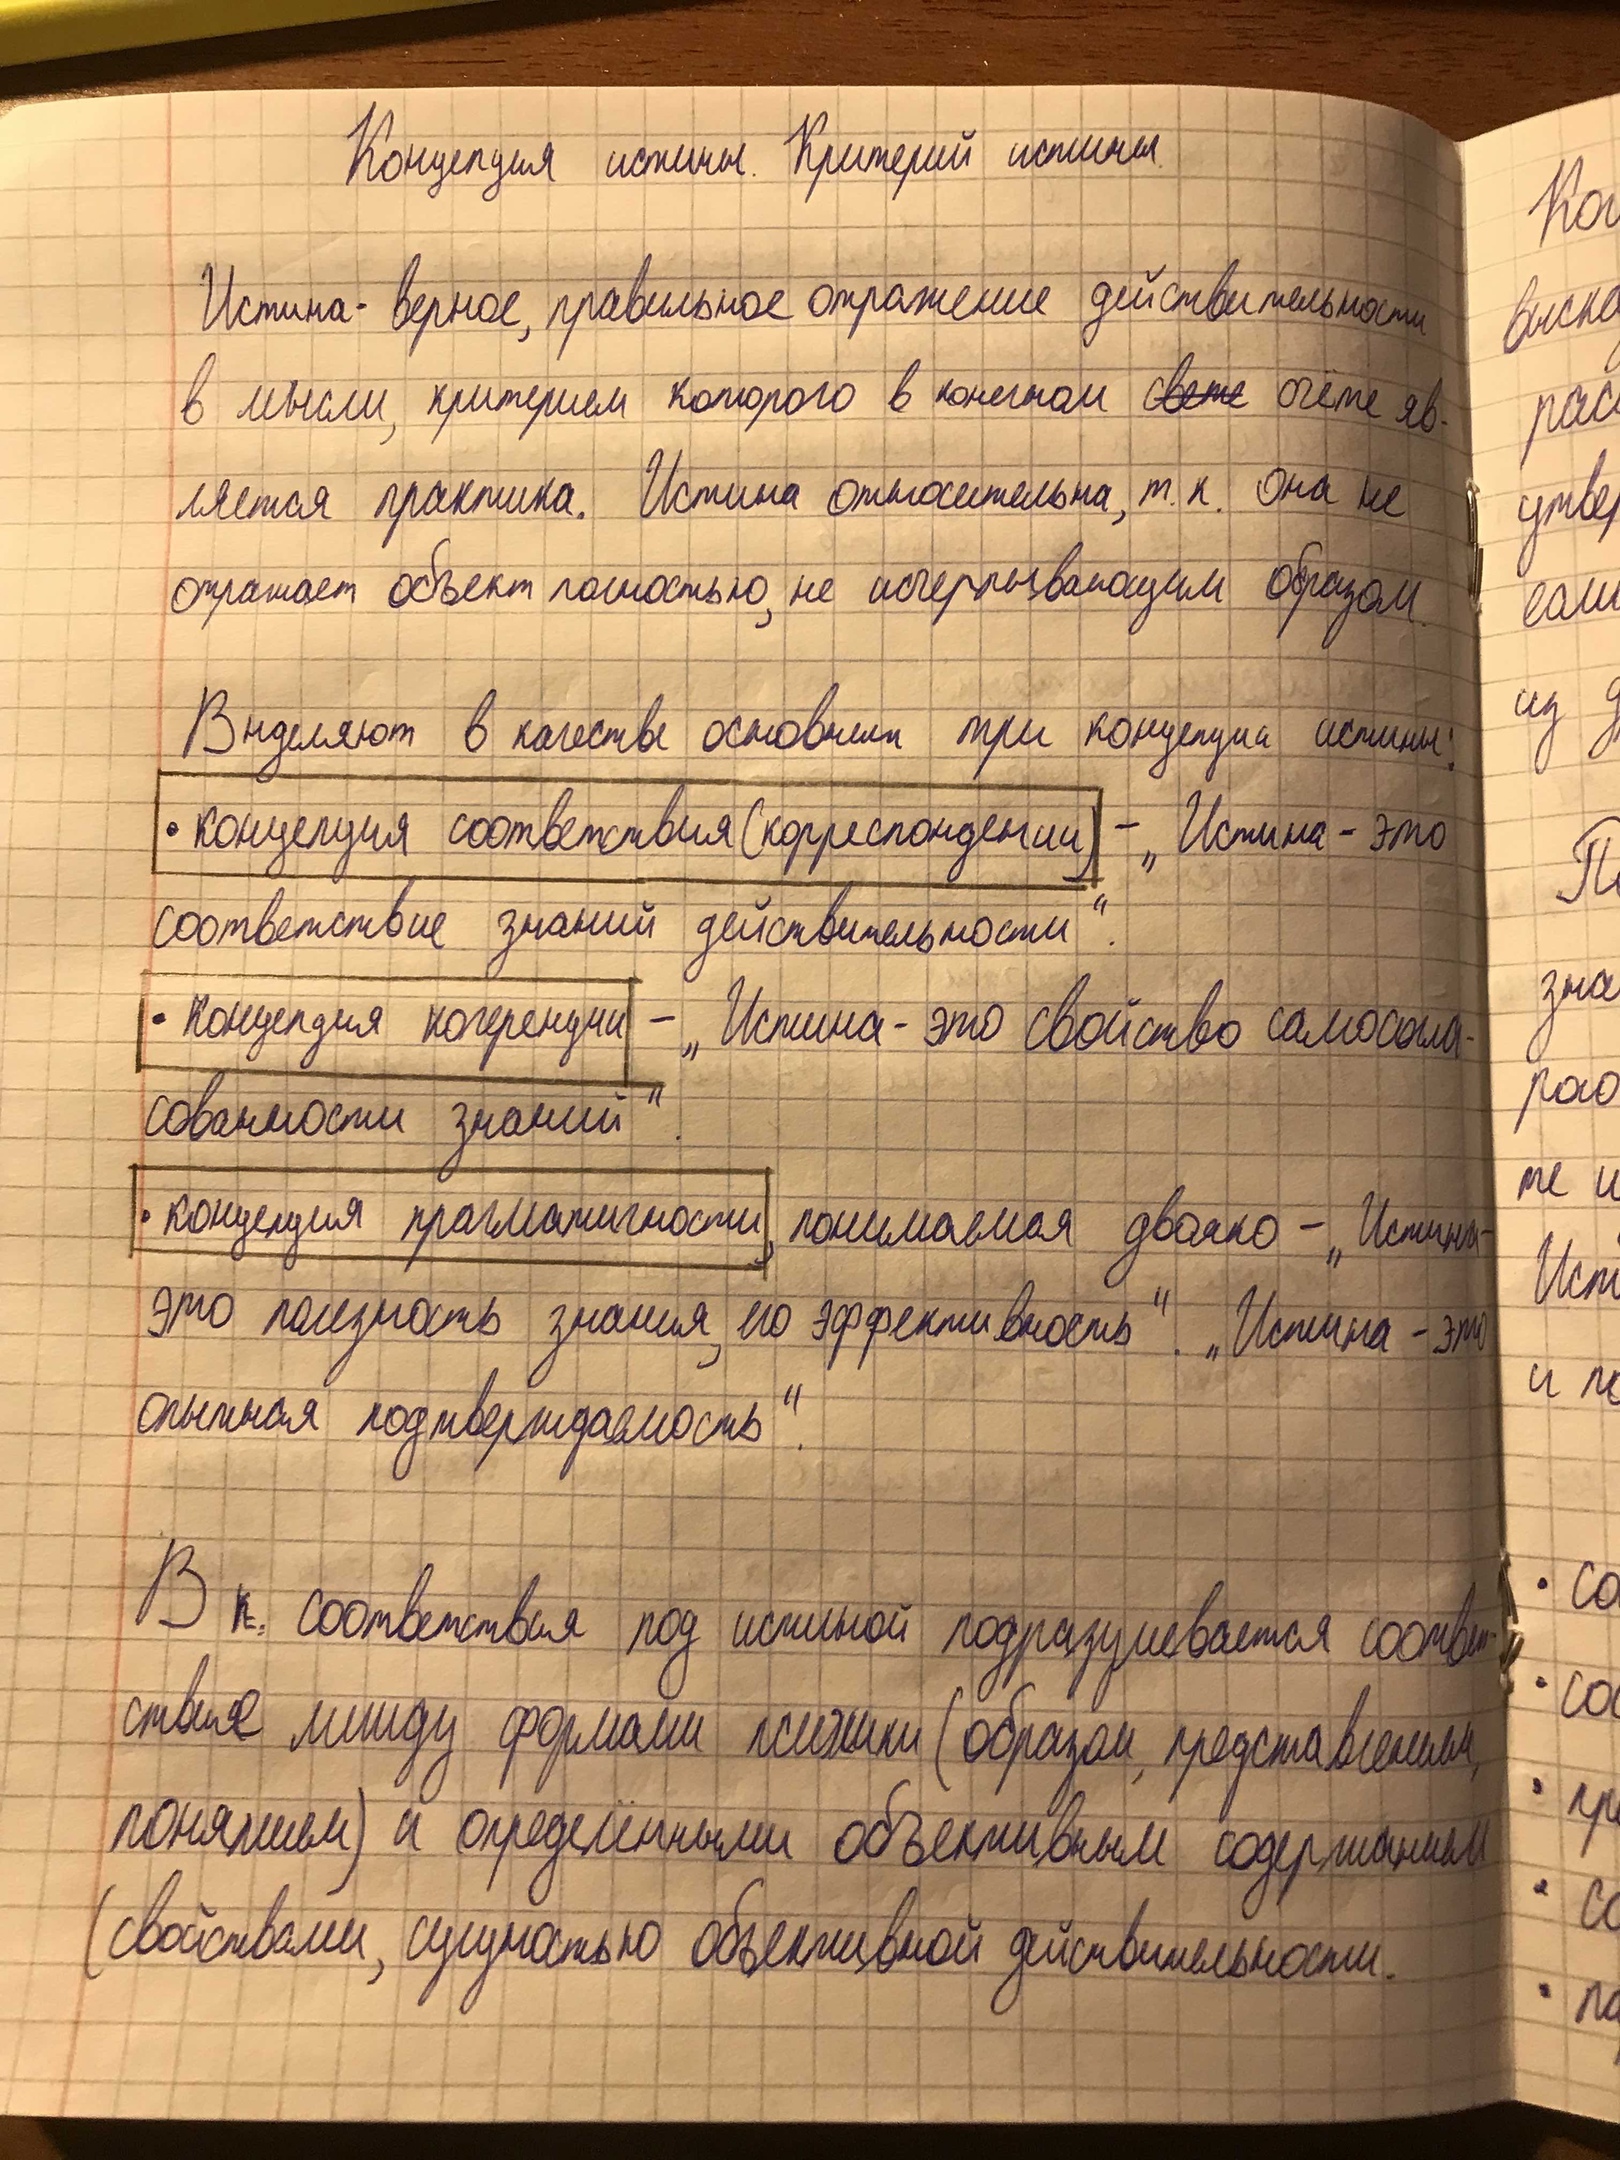 Концепция истины. Критерий истины.
Истина - верное, правильное отражение действительности
в мысли, критерием которого в конечном свете счёте яв-
ляется практика. Истина относительна, т.к. она не
отражает объект полностью, не исчерпывающим образом.
Выделяют в качестве основных три концепции истины:
• концепция соответствия (корреспонденции) - „Истина - это
соответствие знаний действительности“.
• концепция когеренции - „Истина - это свойство самосогла-
сованности знаний“.
• концепция прагматичности, понимаемая двояко - „Истина -
это полезность знания, его эффективность“. „Истина - это
опытная подтверждаемость“.
В к. соответствия под истиной подразумевается соответ-
ствие между формами психики (образом, представлением,
понятием) и определёнными объективным содержанием
(свойствами, сущностью объективной действительности.
Ког
выска
расс
утвер
если
из д
зна
те и
Ист
и по
• со
• соо
• со